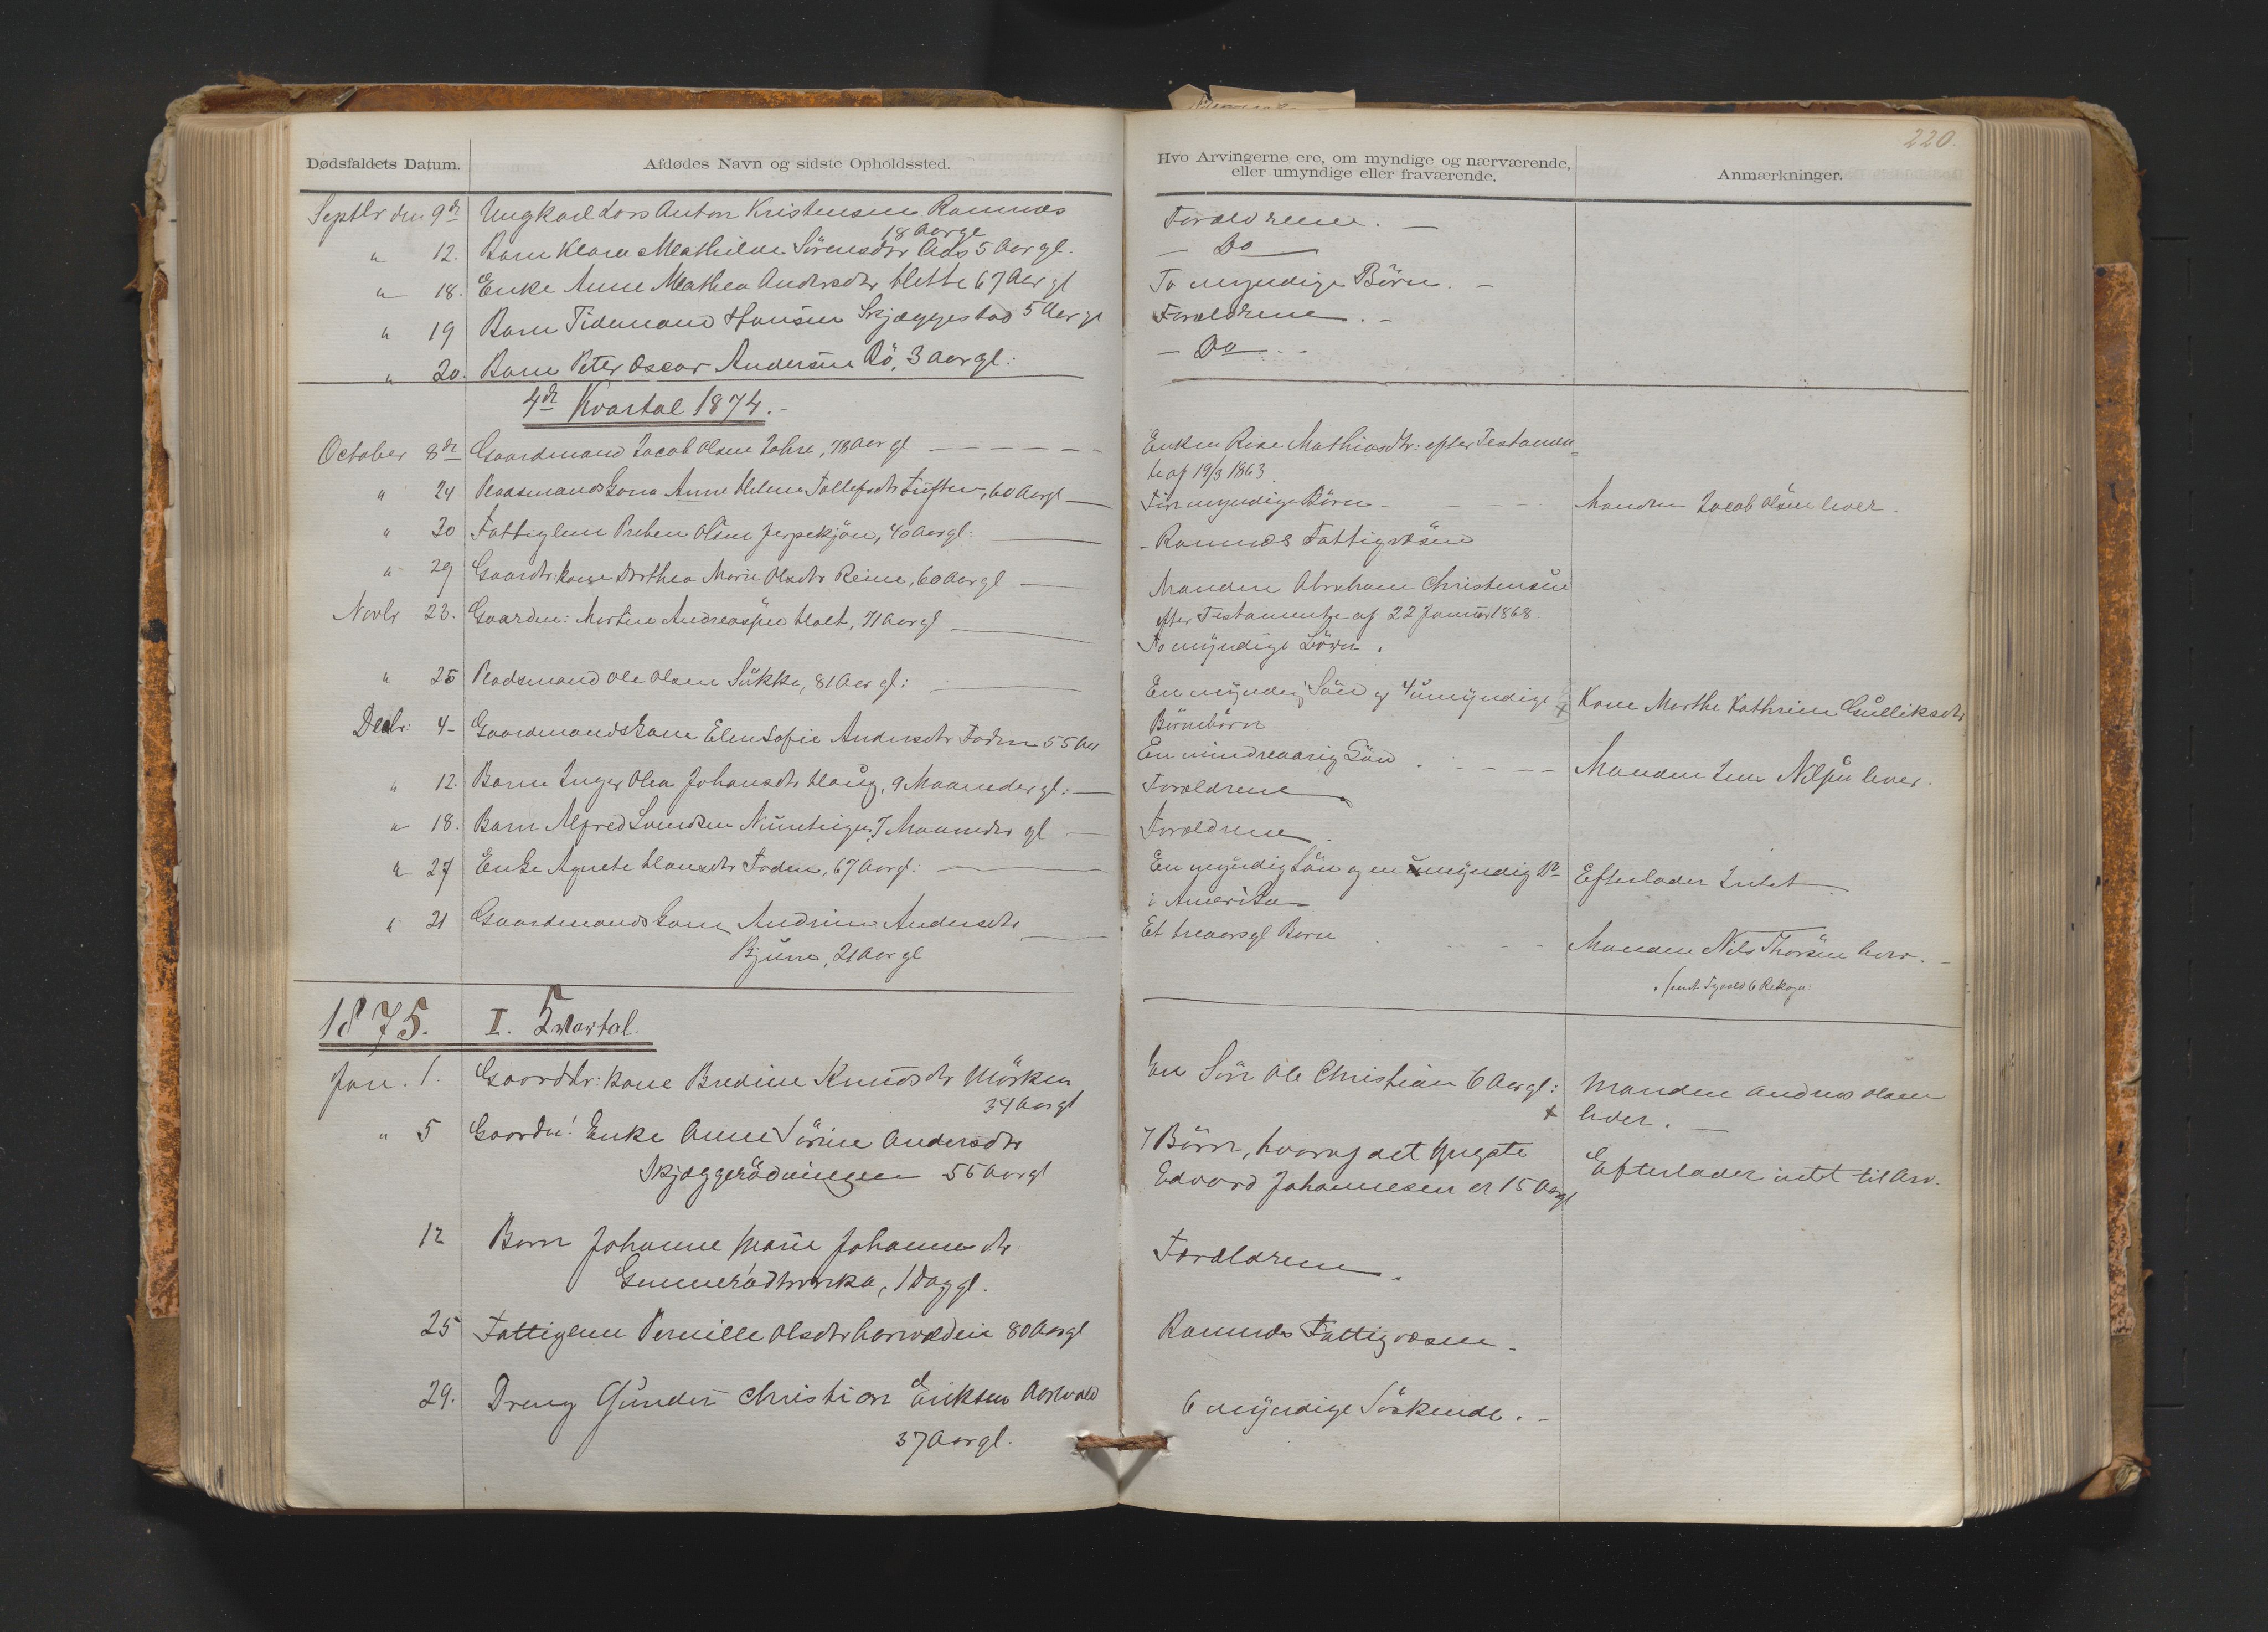 220.
Dødsfaldets Datum. Afdødes Navn og sidste Opholdssted. Hvo Arvingerne ere, om myndige og nærværende, eller umyndige eller fraværende. Anmærkninger.
Septbr den 9de Ungkarl Lars Anton Kristensen Ramnæs 18 Aar gl Forældrene. —
" 12. Barn Klara Mathilde Sørensdtr Aas 5 Aar gl. — Do —
" 18. Enke Anne Mathea Andersdtr Klette 67 Aar gl To myndige Börn. —
" 19 Barn Tidemand Hansen Skjæggestad 5 Aar gl Forældrene. —
" 20. Barn Peter Oscar Andersen Bö, 3 Aar gl: — Do —
4de Kvartal 1874. —
October 8de Gaardmand Jacob Olsen Jahre, 78 Aar gl Enken Mathiasdtr: efter Testamen=
te af 19/3 1863
" 24 Pladsmandskone Anne Helene Tollefsdtr Tuften, 60 Aar gl — myndige Börn — Manden Jacob Olsen lever.
" 30 Fattiglem Preben Olsen Jerpekjön, 40 Aar gl: — Ramnæs Fattigvæsen
" 29 Gaardbr: kone Dorthea Marie Olsdtr Reine, 60 Aar gl — Manden Abraham Christensen
efter Testamente af 22 Januar 1868.
Novbr 23. Gaardm: Martin Andreasen Holt, 71 Aar gl To myndige Börn.
" 25 Pladsmand Ole Olsen Sukke, 81 Aar gl: En myndig Sön og 4 umyndige Börnebörn + Kone Marthe Kathrine Gulliksdtr
Decbr: 4 — Gaardmandskone Elen Sofie Andersdtr Foden 55 Aar En mindreaarig Sön. Manden Jens Nilsen lever.
" 12. Barn Inger Olea Johansdtr Haug, 9 Maaneder gl: — Forældrene
" 18. Barn Alfred Svendsen 7 Maaneder gl — Forældrene.
" 27 Enke Agnete Hansdtr Foden, 67 Aar gl: En myndig Sön og en myndig Do
i Amerika Efterlader Intet
" 21 Gaardmandskone Andrine Andersdtr
Bjune, 21 Aar gl Et treaars gl Barn Manden Nils Thorsen lever. —
1875. I. Kvartal.
Jan. 1. Gaardbr: kone Bredine Knudsdtr Mörken
34 Aar gl En Sön Ole Christian 6 Aar gl: + Manden Andreas Olsen
lever. —
" 5 Gaardm: Enke Anne Sörine Andersdtr
Skjæggerödningen 56 Aar gl 7 Börn, hvoraf det yngste
Edvard Johannesen er 15 Aar gl Efterlader intet til Arv.
12 Barn Johanne Marie Johannesdtr
1 Dag gl. Forældrene.
25 Fattiglem Pernille Olsdtr 80 Aar gl Ramnæs Fattigvæsen.
29. Dreng Gunder Christian Eriksen Aarvold
37 Aar gl. 6 myndige Söskende. —